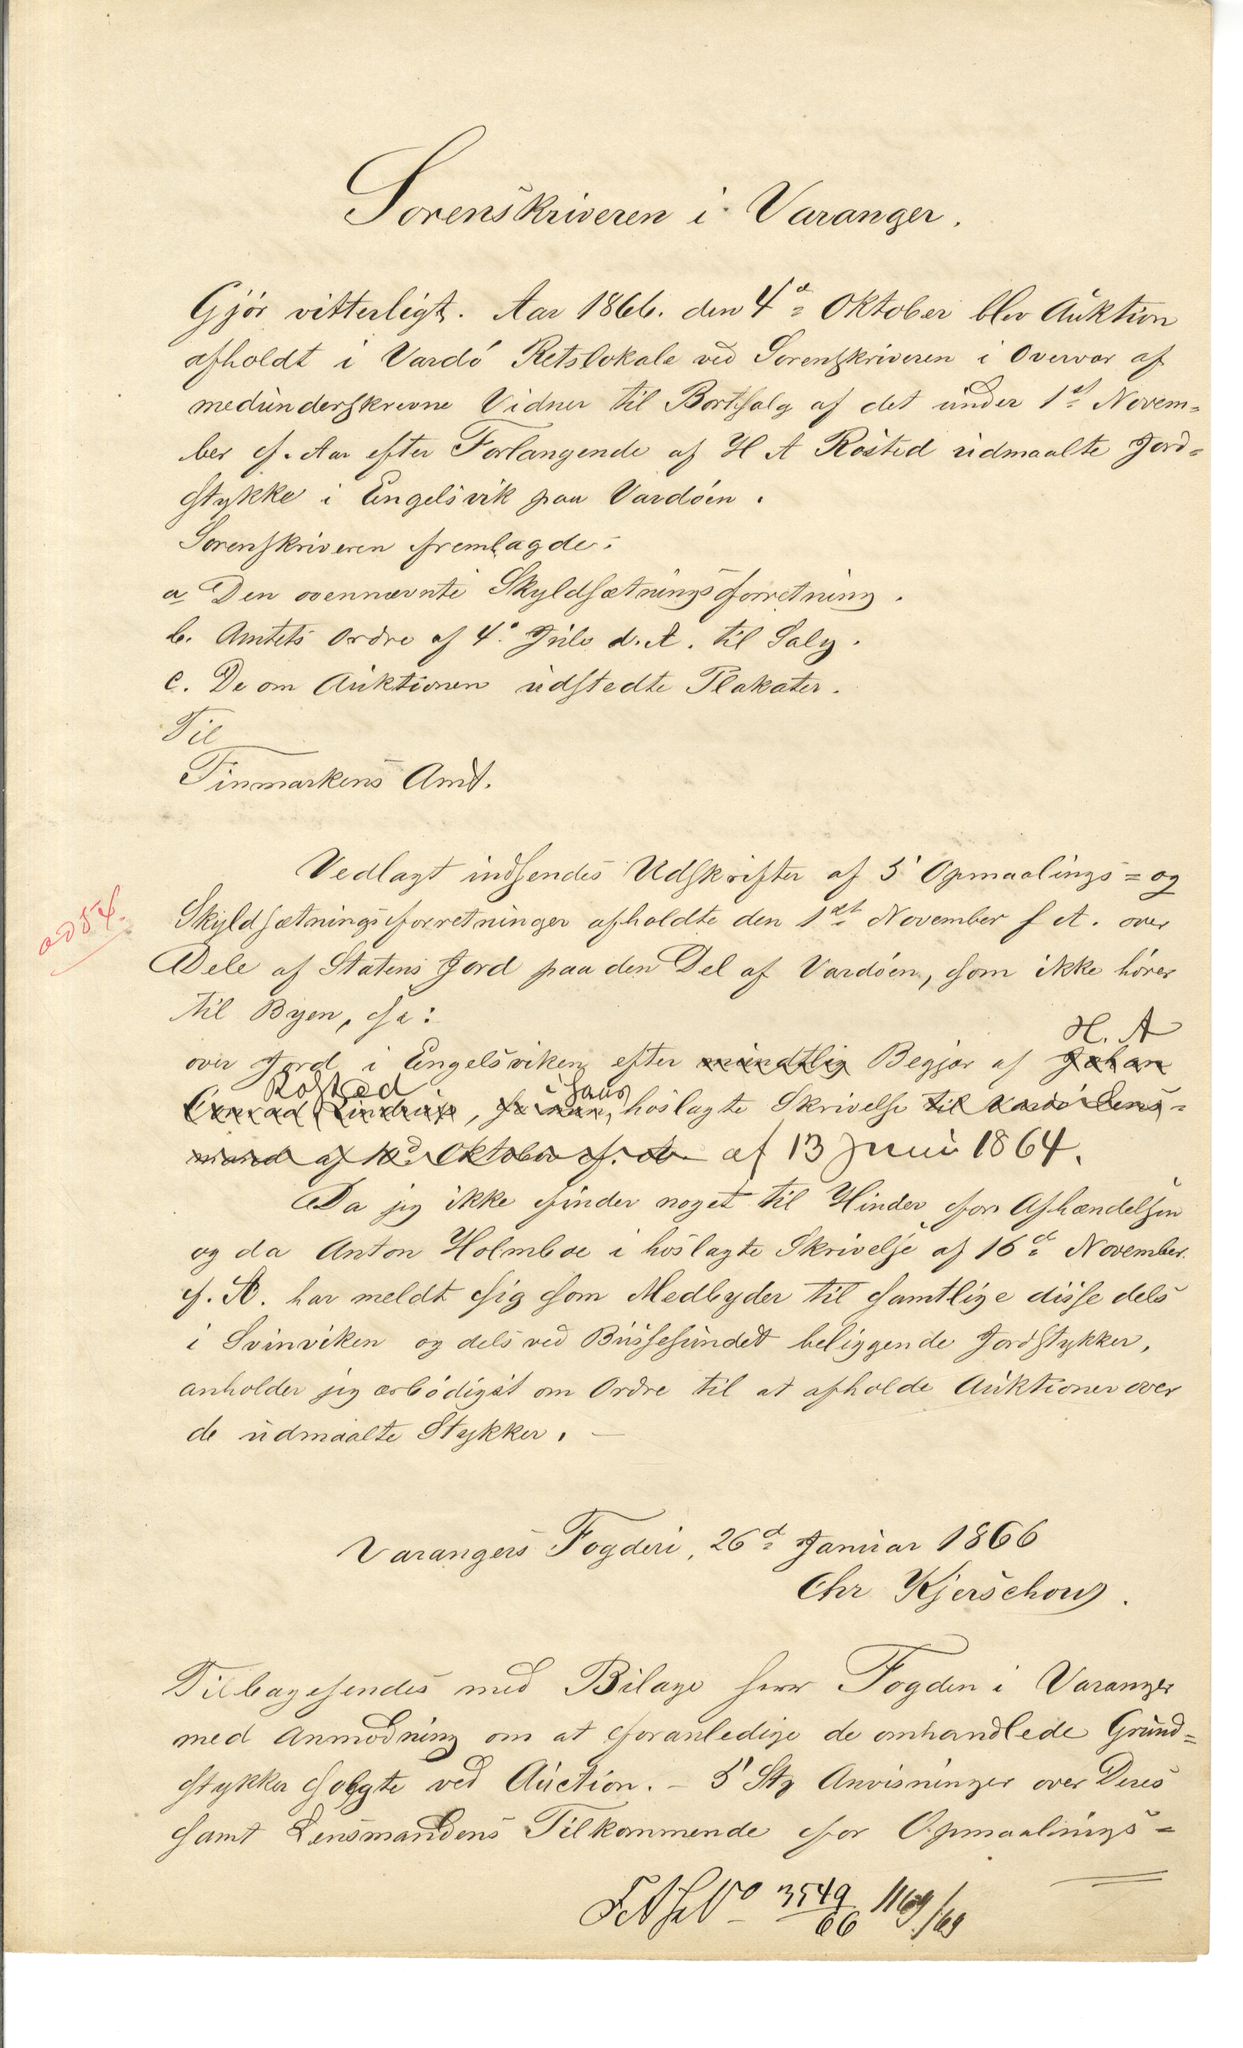 Sorenskriveren i Varanger.
Gjör vitterligt. Aar 1866. den 4de Oktober blev Auktion
afholdt i Vardö Retslokale ved Sorenskriveren i Overvær af
medunderskrevne Vidner til Bortsalg af det under 1st Novem-
ber f. Aar efter Forlangende af H A Rösted udmaalte Jord-
stykke i Engelsvik paa Vardöen.
Sorenskriveren fremlagde:
a Den ovennævnte Skyldsætningsforretning.
b. Amtets Ordre af 4de Juli d. A. til Salg.
c. De om Auktionen udstedte Plakater.
Til
Finmarkens Amt.
Vedlagt indsendes Udskrifter af 5 Opmaalings- og
Skyldsætningsforretninger afholdte den 1st November f A. over
Dele af Statens Jord paa den Del af Vardöen, som ikke hörer
til Byen, sa:
over Jord i Engelsviken efter mundtlig Begjær af Johan H. A
Conrad Lindrup, Rösted i hans höslagte Skrivelse til Vardö Lens-
mand af 10d Oktober f. A. af 13 Juni 1864.
Da jeg ikke finder noget til Hinder for Afhændelsen
og da Anton Holmboe i höslagte Skrivelse af 16d November
f. A. har meldt sig som Medbyder til samtlige disse dels
i Svinviken og dels ved Bussesundet beliggende Jordstykker,
anholder jeg ærbödigst om Ordre til at afholde Auktioner over
de udmaalte Stykker. —
Varangers Fogderi, 26d Januar 1866
Chr Kjerschow.
Tilbagesendes med Bilage Herr Fogden i Varanger
med Anmodning om at foranledige de omhandlede Grund-
stykker solgte ved Auction. – 5 Stk Anvisninger over Deres
samt Lensmandens Tilkommende for Opmaalings-
3549/66 1169/69